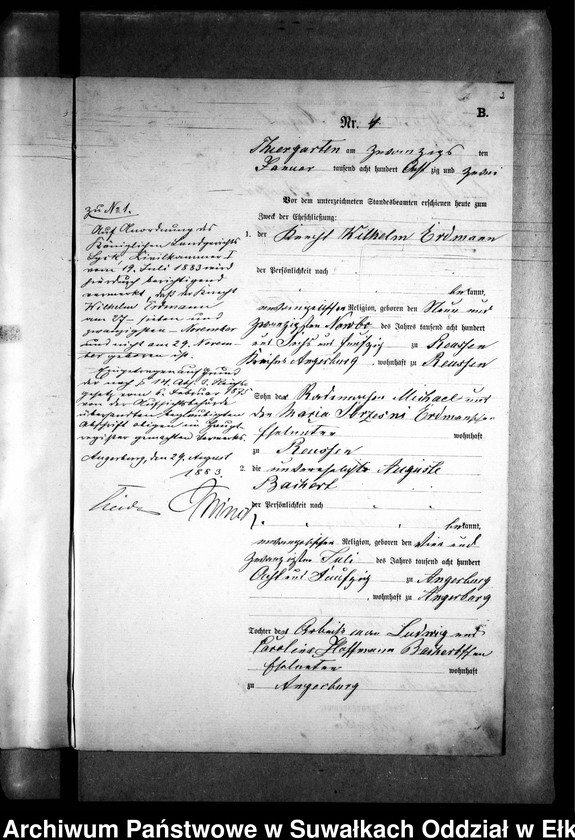 B.
Nr. 4
Thiergarten am zwanzigs ten
Januar tausend acht hundert acht zig und zwei
Vor dem unterzeichneten Standesbeamten erschienen heute zum
Zweck der Eheschließung:
1. der Knecht Wilhelm Erdmann
der Persönlichkeit nach
bekannt,
evangelischer Religion, geboren den Neun und
zwanzigsten Novbr. des Jahres tausend acht hundert
und Sechs und fünfzig zu Reussen
Kreises Angerburg, wohnhaft zu Reussen
Sohn des Michael und
der Maria Erdmannschen
Eheleute wohnhaft
zu Reussen
2. die unverehelichte Auguste
Baikert
der Persönlichkeit nach
bekannt,
evangelischer Religion, geboren den vier und
zwanzigsten Juli des Jahrs tausend acht hundert
Acht und Fünfzig zu Angerburg
, wohnhaft zu Angerburg
Tochter des Arbeitsmann Ludwig und
Caroline Hoffmann Baikertschen
Eheleute wohnhaft
zu Angerburg
zu No 1.
Auf Anordnung des
Königlichen Landgerichts
Lyck Civilkammer I
vom 19. Juli 1883 wird
hierdurch berichtigend
vermerkt, daß der Knecht
Wilhelm Erdmann
am 27 – sieben und
zwanzigsten – November
und nicht am 29. Novem-
ber geboren ist.
Eingetragen auf Grund
der nach § 14 Abs. 2. Reichs-
gesetz vom 6. Februar 1875
von der Aufsichtsbehörde
übersandten beglaubigten
Abschrift obigen im Haupt-
register gemachten Vermerks.
Angerburg, den 29. August
1883.
Archiwum Państwowe w Suwałkach Oddział w Ełk